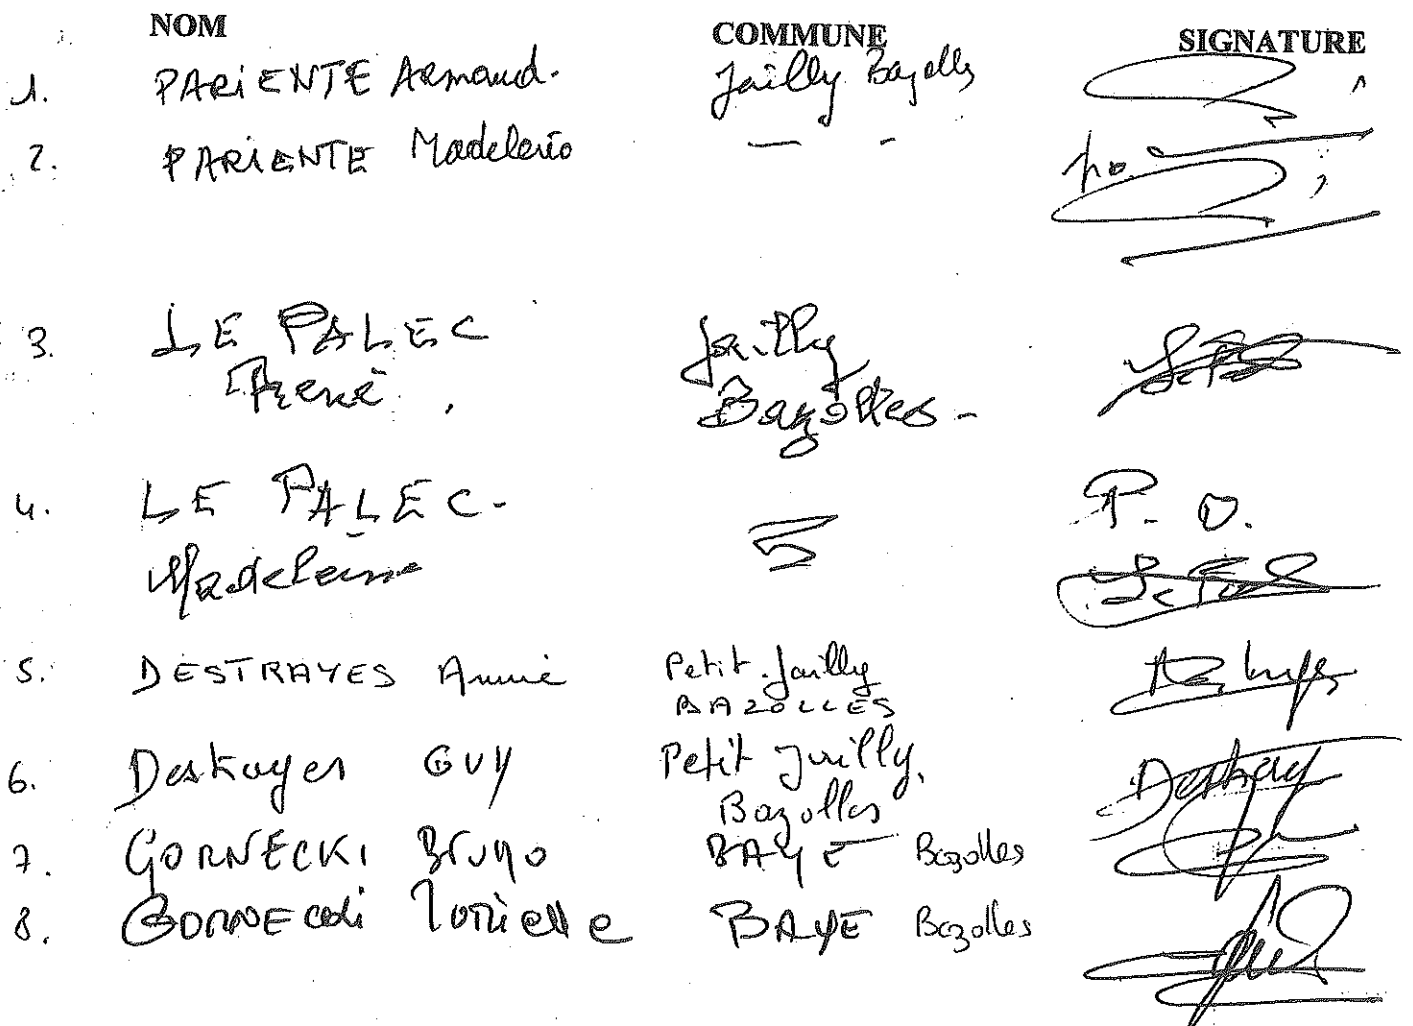 NOM COMMUNE SIGNATURE
1. PARIENTE Armand. Jailly Bazolles
2. PARIENTE Madeleine — - po
3. LE PALEC Jailly
René. Bazolles -
4. LE PALEC - P. O.
Madeleine
5. DESTRAYES Annie Petit Jailly
BAZOLLES
6. Destrayes GUY Petit Jailly,
Bazolles
7. GORNECKI Bruno BAYE Bazolles
8. BAYE Bazolles